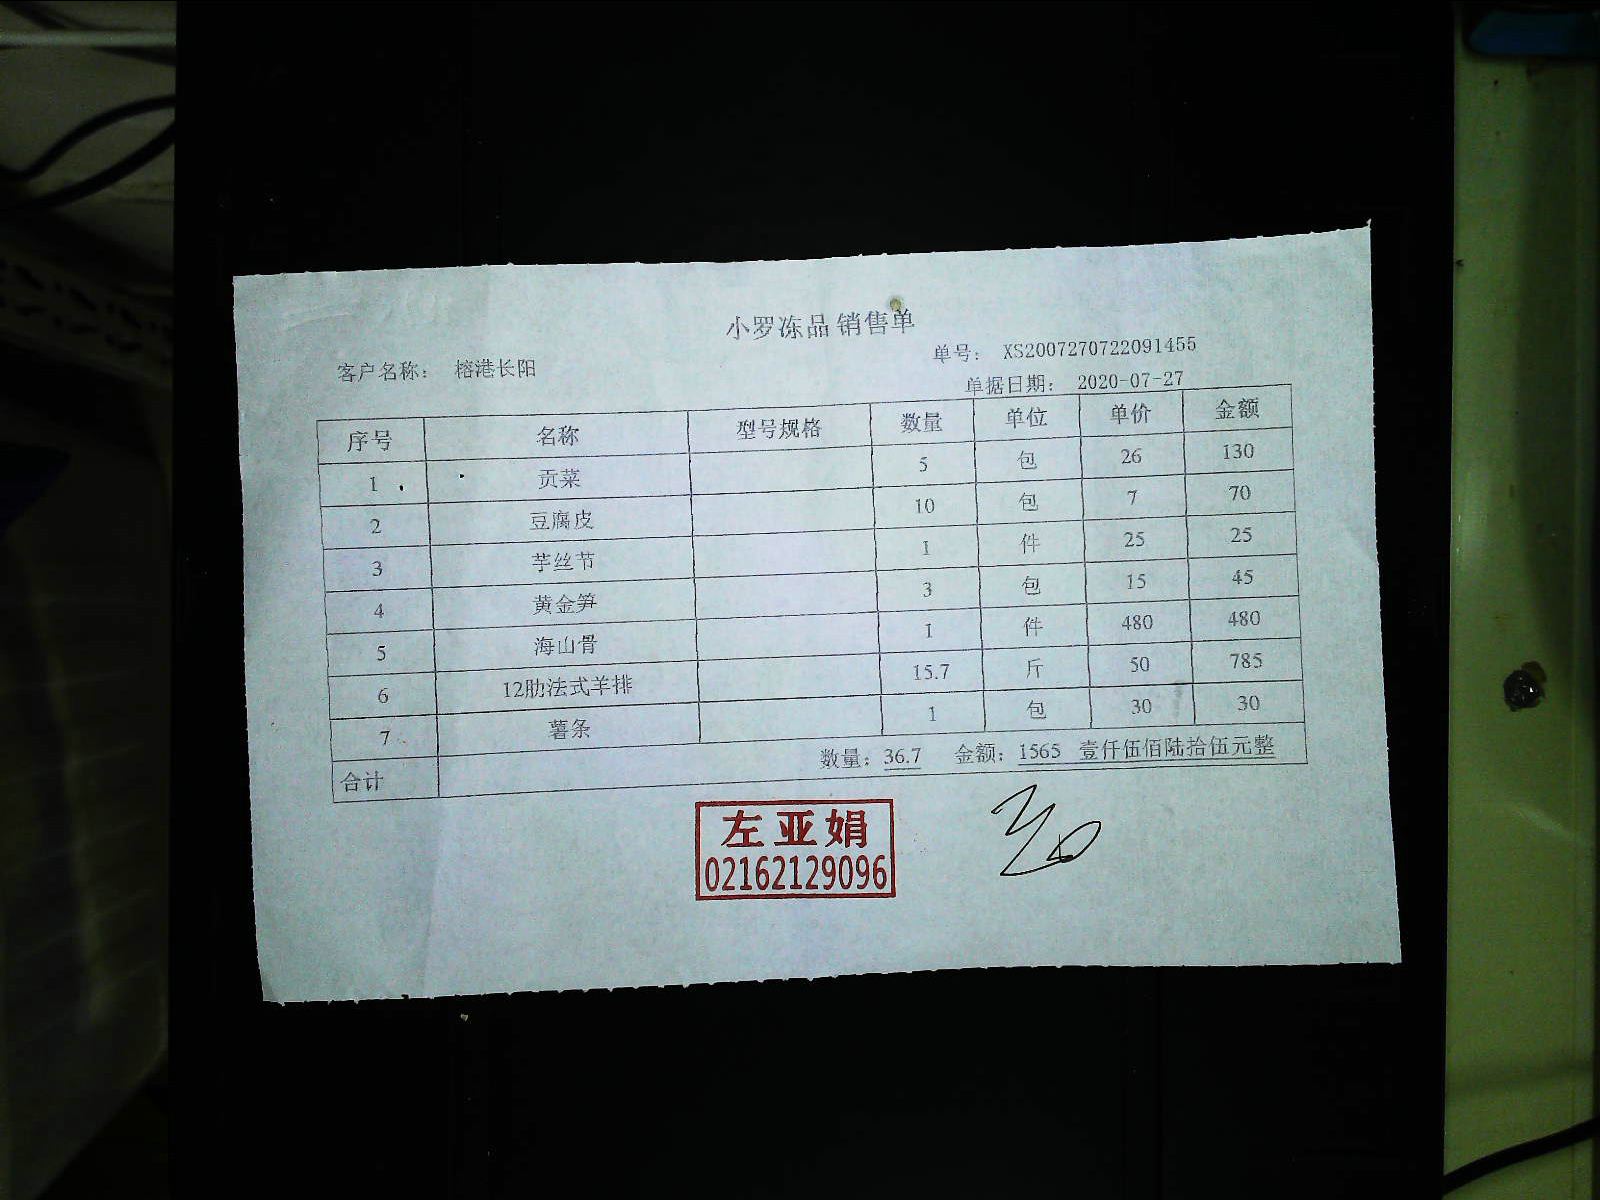 小罗冻品 销售单
客户名称： 榕港长阳 单号： XS2007270722091455
单据日期： 2020-07-27
序号 名称 型号规格 数量 单位 单价 金额
1 贡菜 5 包 26 130
2 豆腐皮 10 包 7 70
3 芋丝节 1 件 25 25
4 黄金笋 3 包 15 45
5 海山骨 1 件 480 480
6 12肋法式羊排 15.7 斤 50 785
7 薯条 1 包 30 30
合计 数量：36.7 金额：1565 壹仟伍佰陆拾伍元整
左亚娟
02162129096